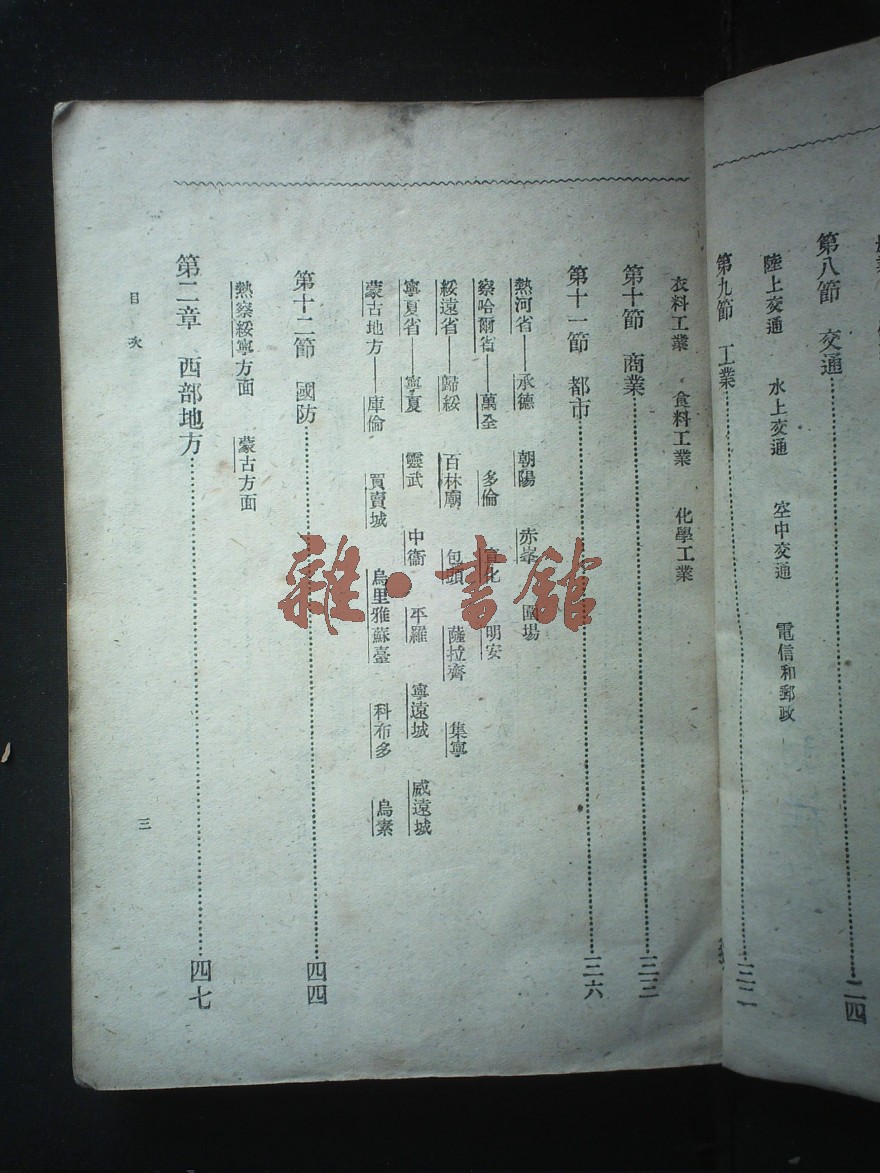 第八節 交通……二四
陸上交通 水上交通 空中交通 電信和郵政
第九節 工業……三二
衣料工業 食料工業 化學工業
第十節 商業……三三
第十一節 都市……三六
熱河省——承德 朝陽 赤峯 圍場
察哈爾省——萬全 多倫 宣化 明安
綏遠省——歸綏 百林廟 包頭 薩拉齊 集寧
寧夏省 寧夏 靈武 中衞 平羅 寧遠城 威遠城
蒙古地方——庫倫 買賣城 烏里雅蘇臺 科布多 烏素
第十二節 國防……四四
熱察綏寧方面 蒙古方面
第二章 西部地方……四七
目次
三
雜·書館